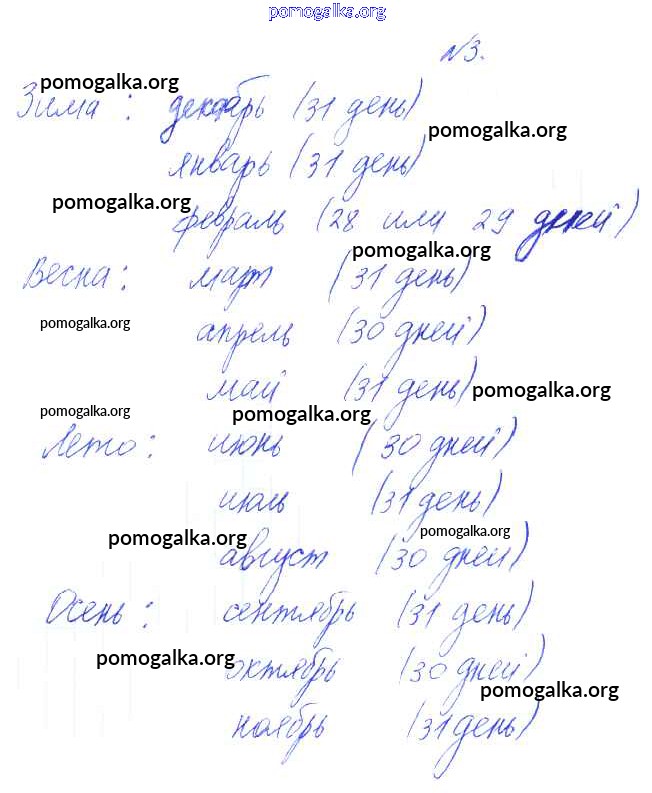 pomogalka.org
№3.
pomogalka.org
Зима: декабрь (31 день)
pomogalka.org
январь (31 день)
pomogalka.org
февраль (28 или 29 дней)
pomogalka.org
Весна: март (31 день)
pomogalka.org
апрель (30 дней)
май (31 день)
pomogalka.org
pomogalka.org
pomogalka.org
Лето: июнь (30 дней)
июль (31 день)
pomogalka.org
pomogalka.org
август (30 дней)
Осень: сентябрь (31 день)
pomogalka.org
октябрь (30 дней)
pomogalka.org
ноябрь (31 день)